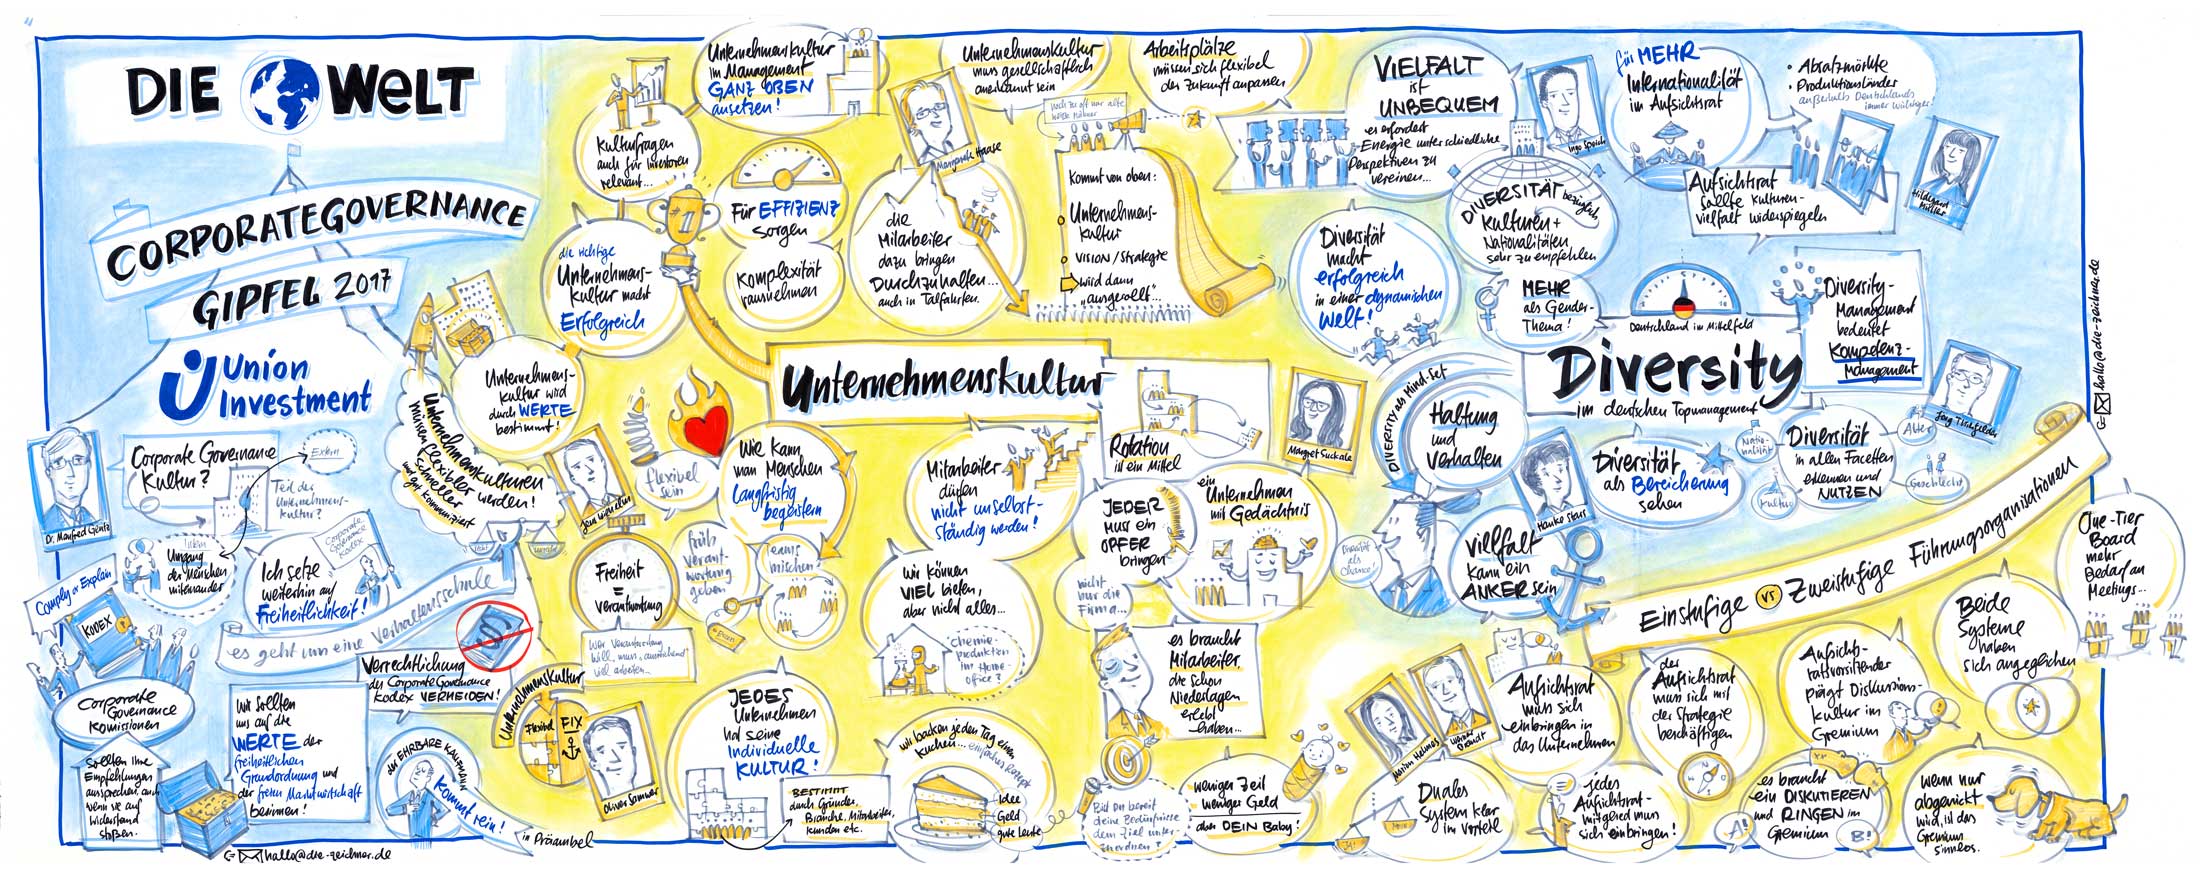 DIE WELT
CORPORATE GOVERNANCE
GIPFEL 2017
Union
Investment
Dr. Manfred Gentz
Corporate Governance
Kultur?
Extern
Teil der
Unternehmens-
kultur?
Intern
Umgang
der Menschen
miteinander
Corporate
Governance
Kodex
Ich setze
weiterhin auf
Freiheitlichkeit!
Comply or Explain
KODEX
es geht um eine Verhaltensschule
Corporate
Governance
Komissionen
sollten ihre
Empfehlungen
aussprechen, auch
wenn sie auf
Widerstand
stoßen.
Wir sollten
uns auf die
WERTE der
freiheitlichen
Grundordnung und
der freien Marktwirtschaft
besinnen!
Verrechtlichung
des Corporate Governance
Kodex VERMEIDEN!
der EHRBARE KAUFMANN
kommt rein!
in Präambel
hallo@die-zeichner.de
Unternehmenskulturen
müssen flexibler
schneller
werden!
und gut kommuniziert
Unternehmens-
kultur wird
durch WERTE
bestimmt!
die richtige
Unternehmens-
kultur macht
Erfolgreich
Kulturfragen
auch für Investoren
relevant...
Unternehmenskultur
im Management
GANZ OBEN
ansetzen!
#1
Für EFFIZIENZ
sorgen
Komplexität
rausnehmen
Margarete Haase
die
Mitarbeiter
dazu bringen
Durchzuhalten...
auch in Talfahrten.
Unternehmenskultur
muss gesellschaftlich
anerkannt sein
Arbeitsplätze
müssen sich flexibel
der Zukunft anpassen
Kommt von oben:
Unternehmens-
kultur
VISION / Strategie
wird dann
"ausgerollt"...
Unternehmenskultur
flexibel
sein
Wie kann
man Menschen
langfristig
begeistern
Freiheit
=
Verantwortung
früh
Verant-
wortung
geben
eins
mischen
Wer Verantwortung
will, muss, ausreichend
viel arbeiten...
Unternehmenskultur
Flexibel
FIX
Oliver Samwer
JEDES
Unternehmen
hat seine
Individuelle
KULTUR!
BESTIMMT
durch Gründer,
Branche, Mitarbeiter,
Kunden etc.
Mitarbeiter
dürfen
nicht unselbst-
ständig werden!
Wir können
VIEL bieten,
aber nicht alles...
Chemie-
produkten
im Home-
office?
wir backen jeden Tag einen
Kuchen... einfaches Rezept
Idee
Geld
gute Leute
Rotation
ist ein Mittel
Margret Suckale
JEDER
muss ein
OPFER
bringen
nicht
nur die
Firma...
ein
Unternehmen
mit Gedächtnis
es braucht
Mitarbeiter
die schon
Niederlagen
erlebt
haben...
Bist Du bereit
deine Bedürfnisse
dem Ziel unter-
zuordnen?
weniger Zeit
weniger Geld
aber DEIN Baby!
VIELFALT
ist
UNBEQUEM
es erfordert
Energie unterschiedliche
Perspektiven zu
vereinen...
Ingo Speich
für MEHR
Internationalität
im Aufsichtsrat
• Absatzmärkte
• Produktionsländer
außerhalb Deutschlands
immer wichtiger
Aufsichtsrat
sollte Kulturen-
vielfalt widerspiegeln
Hildegard
Müller
DIVERSITÄT bezüglich
Kulturen +
Nationalitäten
sehr zu empfehlen
Diversität
macht
erfolgreich
in einer dynamischen
Welt!
MEHR
als Gender-
Thema!
Deutschland im Mittelfeld
Diversity-
Management
bedeutet
Kompetenz-
Management
Diversity
im deutschen Topmanagement
DIVERSITY als Mind-Set
Haltung
und
Verhalten
Diversität
als
Chance!
Vielfalt
kann ein
ANKER sein
Diversität
als Bereicherung
sehen
Natio-
nalität
Kultur
Diversität
in allen Facetten
erkennen und
NUTZEN
Alter
Geschlecht
hallo@die-zeichner.de
Einstufige vs Zweistufige Führungsorganisationen
One-Tier
Board
mehr
Bedarf an
Meetings...
Beide
Systeme
haben
sich angeglichen
Aufsichts-
ratsvorsitzender
prägt Diskussions-
kultur im
Gremium
der
Aufsichtsrat
muss sich mit
der Strategie
beschäftigen
Aufsichtsrat
muss sich
einbringen in
das Unternehmen
Duales
System klar
im Vorteil
jedes
Aufsichtsrat-
mitglied muss
sich einbringen!
es braucht
ein DISKUTIEREN
und RINGEN im
Gremium
A!
B!
wenn nur
abgenickt
wird, ist das
Gremium
sinnlos.